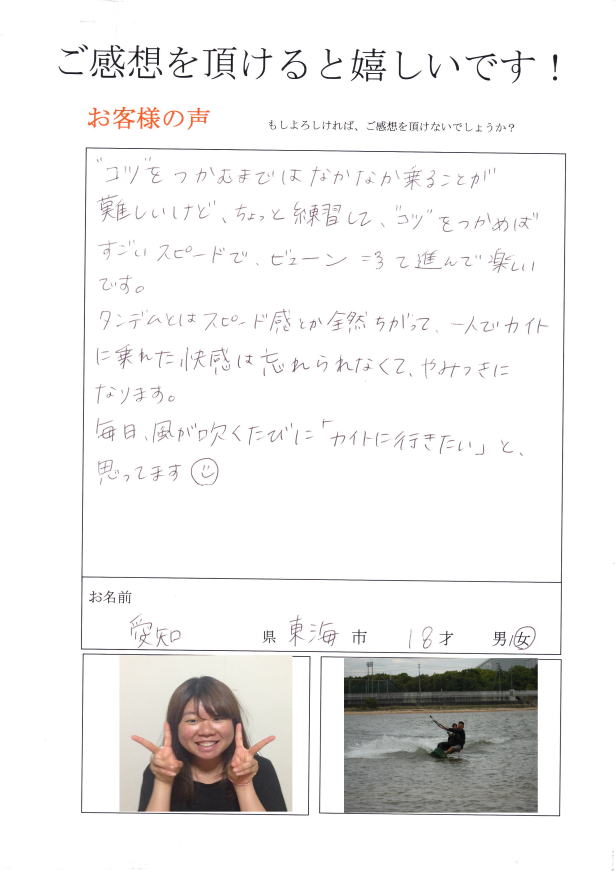 ご感想を頂けると嬉しいです！
お客様の声
もしよろしければ、ご感想を頂けないでしょうか？
"コツ"をつかむまではなかなか乗ることが
難しいけど、ちょっと練習して、"コツ"をつかめば
すごいスピードで、ビューンって進んで楽しい
です。
タンデムとはスピード感とか全然ちがって、一人でカイト
に乗れた快感は忘れられなくて、やみつきに
なります。
毎日、風が吹くたびに「カイトに行きたい」と、
思ってます
お名前
愛知 県 東海 市 18才 男/女